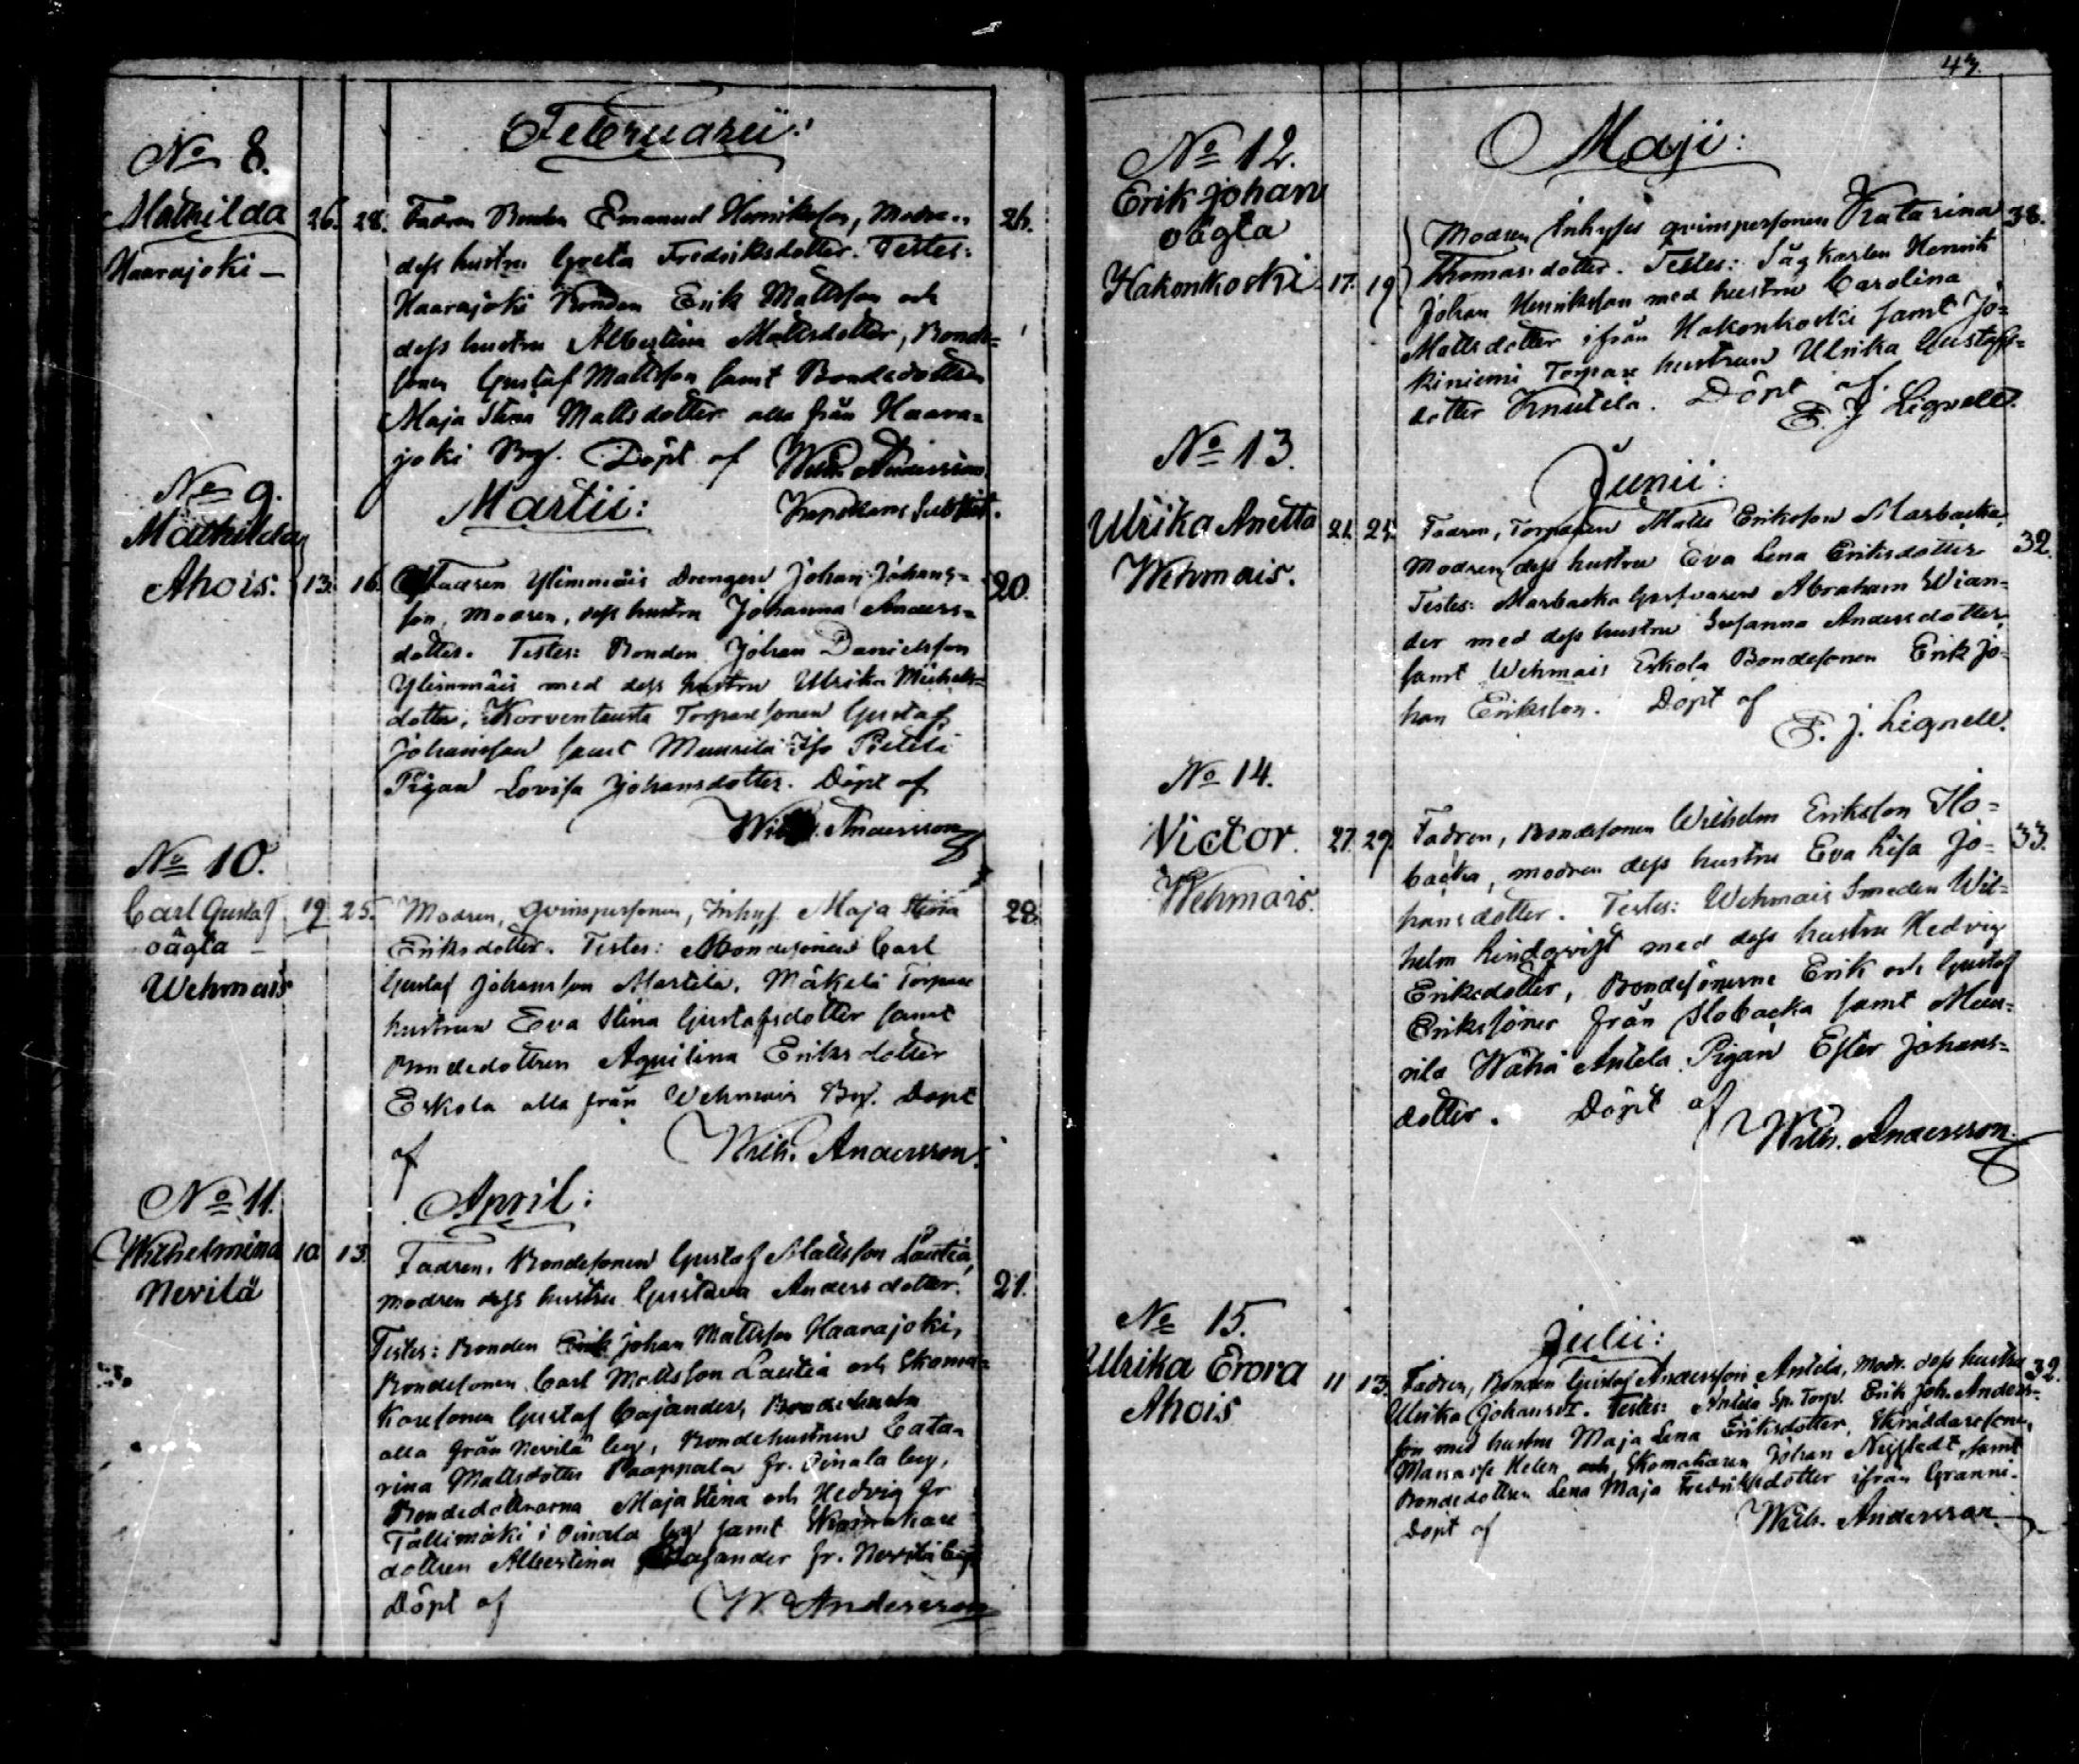 Februarii:
No 8.
Mathilda
Haarajoki
26. 28.
Fadren Bonden Emanuel Henriksson, Modren
dess hustru Greta Fredriksdotter. Testes:
Haarajoki Bonden Erik Mattsson och
dess hustru Albertina Mattsdotter, Bonde=
sonen Gustaf Mattsson samt Bondedottren
Maja Stina Mattsdotter alla från Haara=
joki By. Döpt af Wilh. Andersson
26.
Martii:
No 9.
Mathilda
Ahois.
13. 16.
Fadren Ylimmäis Drengen Johan Johans=
son, Modren, dess hustru Johanna Anders=
dotter. Testes: Bonden Johan Danielsson
Ylimmäis med dess hustru Ulrika Michels=
dotter, Korventausta Torparesonen Gustaf
Johansson samt Maunila Iso Pietilä
Pigan Lovisa Johansdotter. Döpt af
Wilh. Andersson
20.
No 10.
Carl Gustaf
oägta
Wehmais
19 25.
Modren, qvinspersonen, Inhys. Maja Stina
Eriksdotter. Testes: Bondesonen Carl
Gustaf Johansson Martila, Mäkelä Torpare
hustrun Eva Stina Gustafsdotter samt
Bondedottren Aquilina Eriksdotter
Eskola alla från Wehmais By. Döpt
af Wilh. Andersson.
28.
April:
No 11.
Wilhelmina
Nevilä
10 13.
Fadren, Bondesonen Gustaf Mattsson Lautia,
modren dess hustru Gustava Andersdotter.
Testes: Bonden Johan Mattsson Haarajoki,
Bondesonen Carl Mattsson Lautia och Skoma=
karesonen Gustaf Cajander,
alla från Nevilä by, Bondehustrun Cata=
rina Mattsdotter Paappala fr. Oinala by,
Bondedöttrarna Maja Stina och Hedvig fr
Tallimäki i Oinala by samt Skomakare
dottren Albertina Cajander fr. Nevilä by.
Döpt af W. Andersson
21.
43.
Maji:
No 12.
Erik Johan
oägta
Hakonkoski
17. 19
Modren Inhyses qvinspersonen Katarina
Thomasdotter. Testes: Sågkarlen Henrik
Johan Henriksson med hustru Carolina
Mattsdotter ifrån Hakonkoski samt Jo=
kiniemi Torpare hustrun Ulrika Gustafs=
dotter Knutila. Döpt af
E. J. Lignell.
38.
Junii:
No 13.
Ulrika Anetta
Wehmais.
21. 25.
Fadren, Torparen Matts Eriksson Marbacka,
Modren dess hustru Eva Lena Eriksdotter
Testes: Marbacka Abraham Wian=
der med dess hustru Susanna Andersdotter,
samt Wehmais Eskola Bondesonen Erik Jo=
han Eriksson. Döpt af
E. J. Lignell.
32.
No 14.
Victor.
Wehmais.
27. 29.
Fadren, Bondesonen Wilhelm Eriksson Ilo=
backa, modren dess hustru Eva Lisa Jo=
hansdotter. Testes: Wehmais Smeden Wil=
helm Lindqvist med dess hustru Hedvig
Eriksdotter, Bondesönerne Erik och Gustaf
Erikssöner från Ilobacka samt Mau=
nila Wähä Antila Pigan Ester Johans=
dotter. Döpt af
Wilh. Andersson.
33.
Julii:
No 15.
Ulrika Erora
Ahois
11 13.
Fadren, Bonden Gustaf Andersson Antila, Modr. dess hustru
Ulrika Johansdt. Testes: Antila Sp. Torp. Erik Joh. Anders=
son med hustru Maja Lena Eriksdotter, Skräddaresonen
Manasse Helen och Skomakaren Johan samt
Bondedottren Lena Maja Fredriksdotter ifrån Granni.
Döpt af Wilh. Andersson.
32.